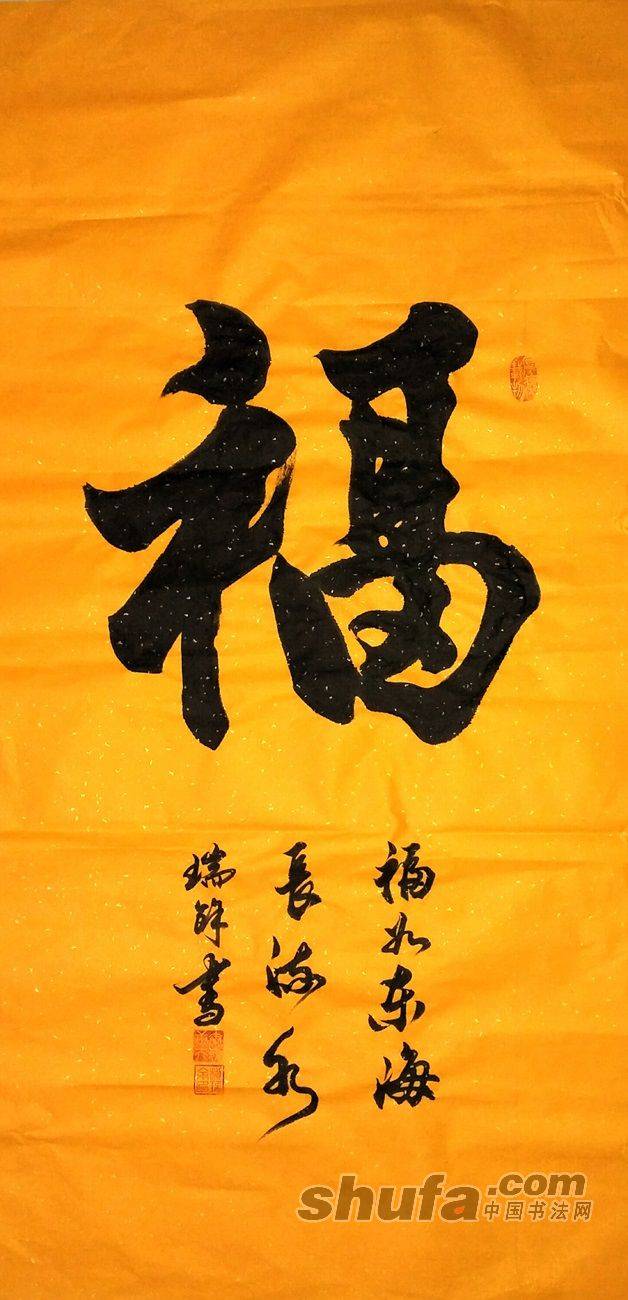 福
福如东海
長流水
瑞餘書
shufa.com
中国书法网